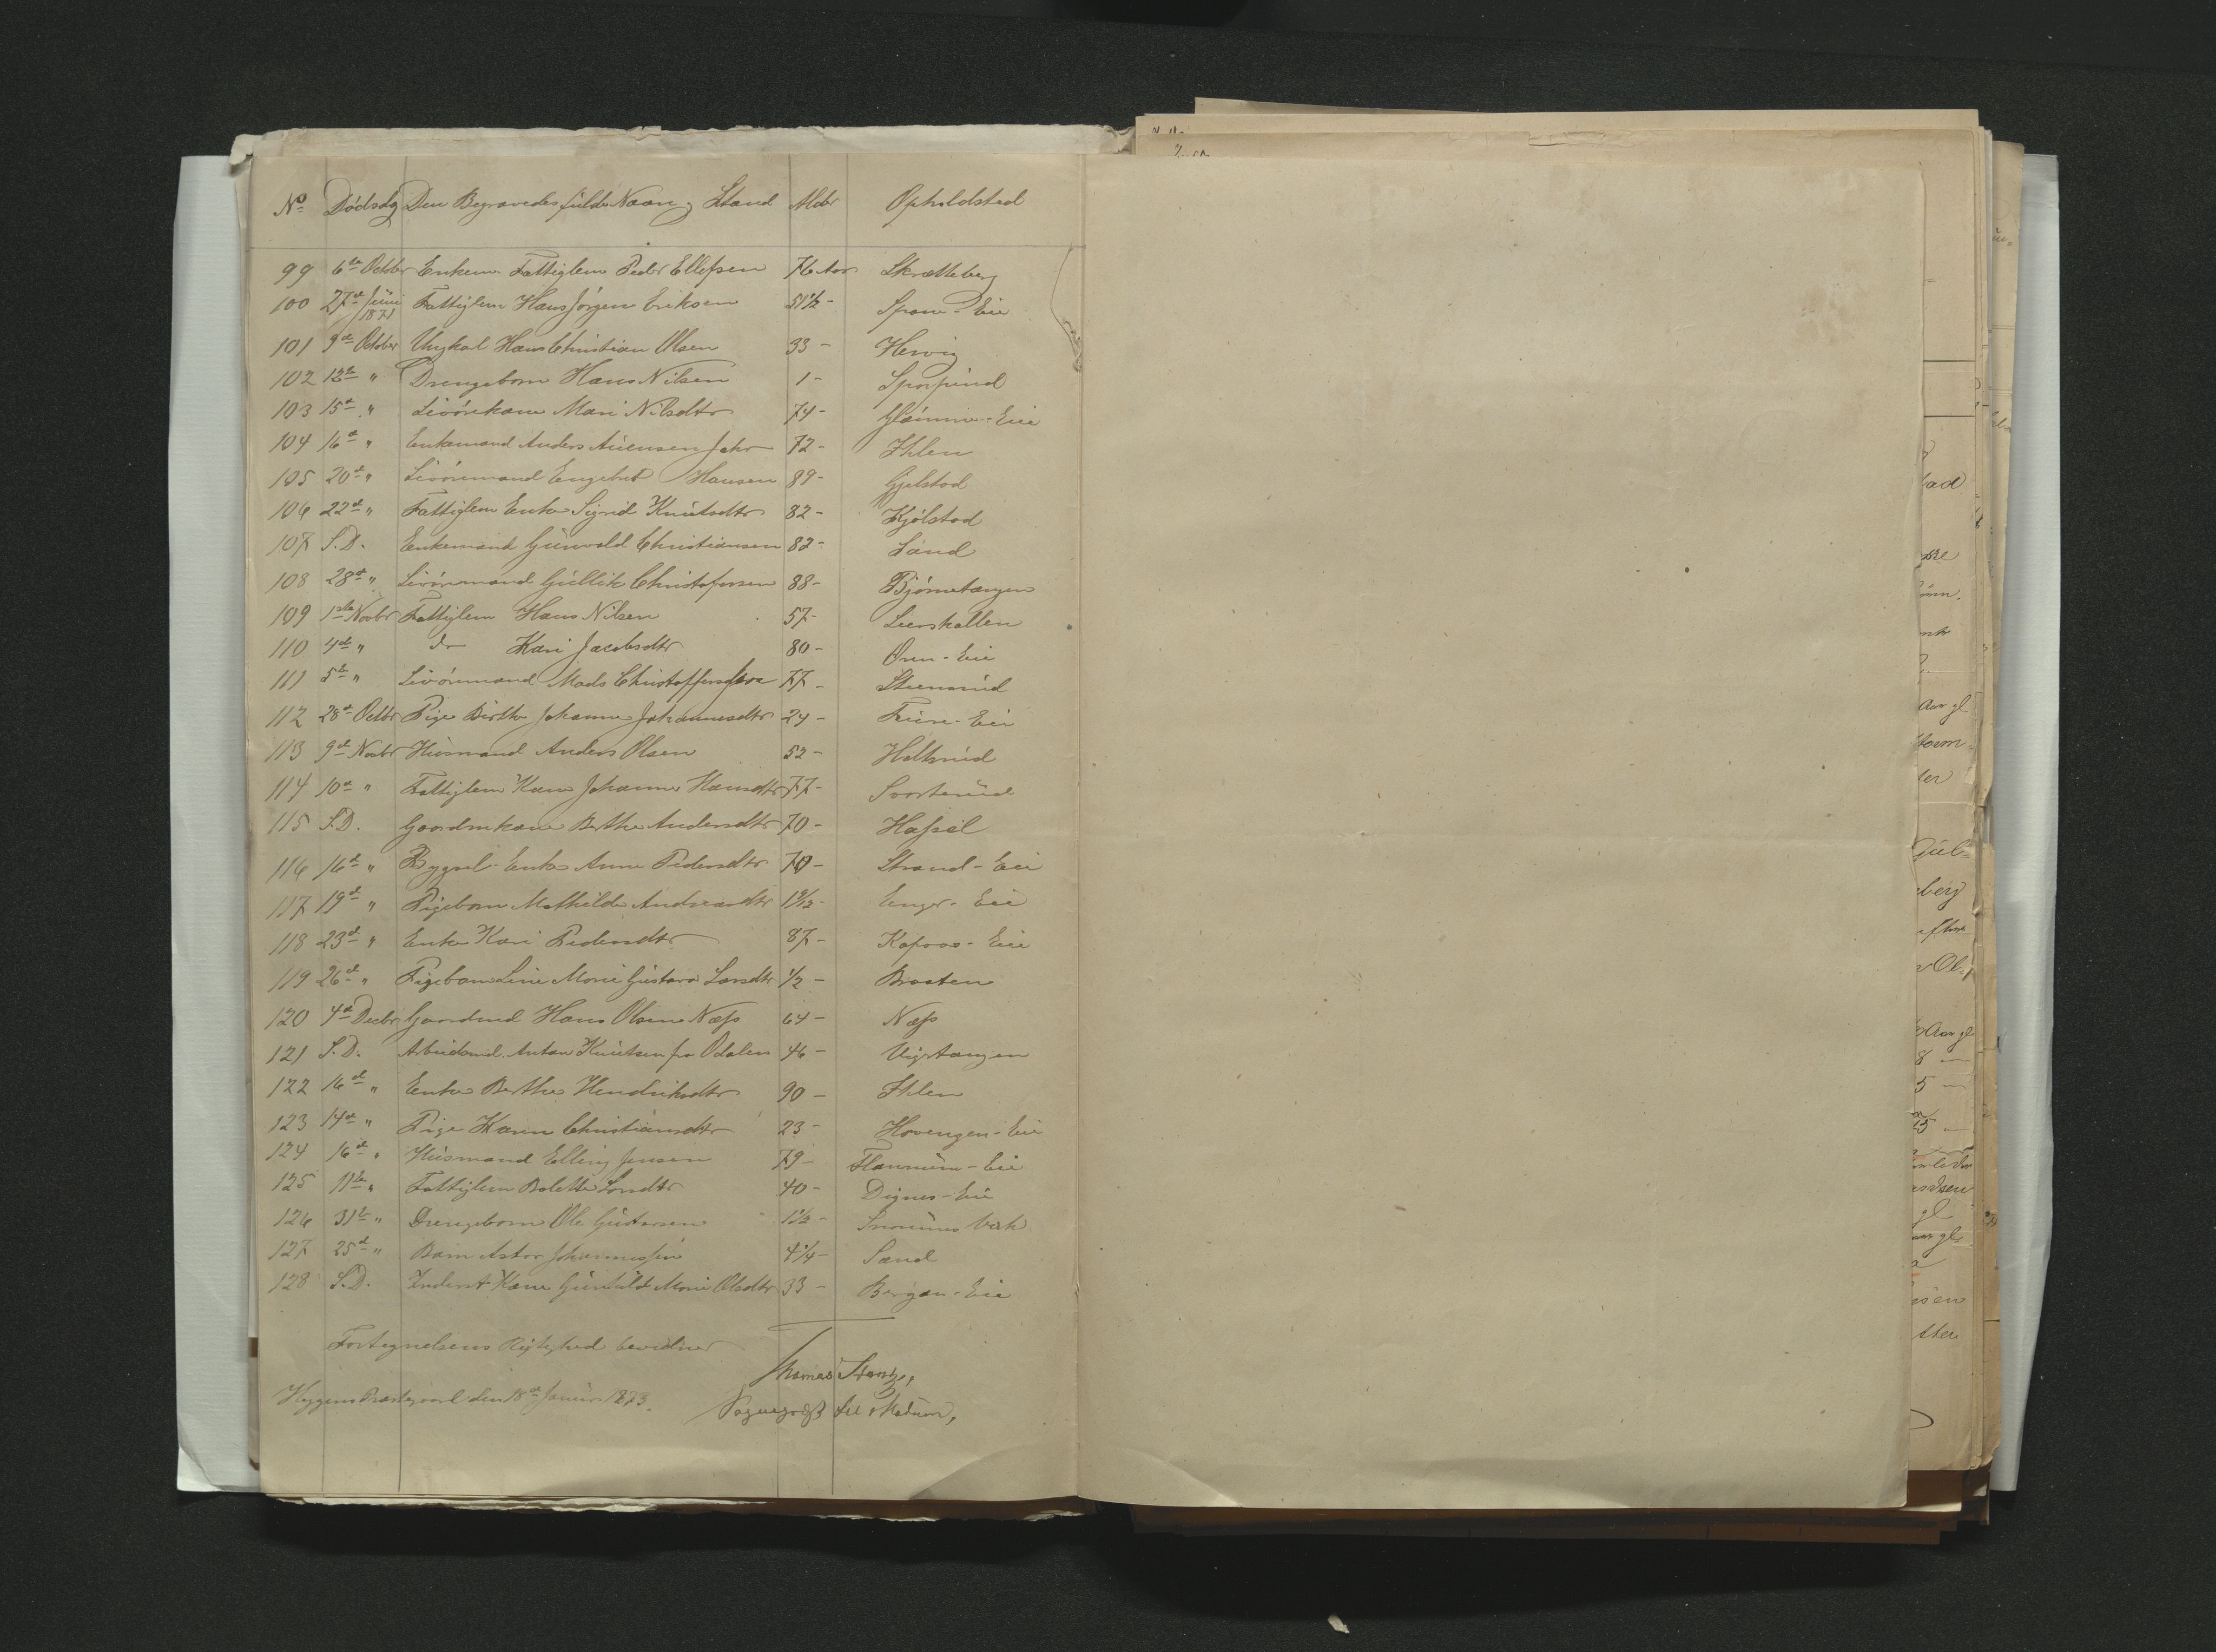 No Dödsdg Den Begravedes fulde Navn og Stand Alder Opholdsted
99 6te October Enkem. Fattiglem Peder Ellefsen 76 Aar Skrætteberg
100 27d Juni 1871 Fattiglem Hans Jörgen Eriksen 51½ - Spone-Eie
101 9de October Ungkarl Hans Christian Olsen 33 - Hervig
102 12te " Drengebarn Hans Nilsen 1 -
103 15de " Livörekone Mari Nilsdtr 74 - -Eie
104 16de " Enkemand Anders Auensen 72 - Ihlen
105 20de " Livöremand Engebret Hansen 89 - Gjelstad
106 22de " Fattiglem Enke Sigrid Knutsdtr 82 - Kjölstad
107 S.D. Enkemand Gunvald Christiansen 82 - Sand
108 28de " Livöremand Gullik Christofersen 88 - Björnetangen
109 1ste Novbr Fattiglem Hans Nilsen 57 - Leerskallen
110 4de " do Kari Jacobsdtr 80 - Oren-Eie
111 5te " Livöremand Mads Christoffersen 77 - Steensrud
112 28de Octbr Pige Birthe Johanne Johannesdtr 24 - Fure-Eie
113 9de Novbr Husmand Anders Olsen 52 - Holtsrud
114 10de " Fattiglem Kone Johanne Hansdtr 77 -
115 S.D. Gaardmkone Berthe Andersdtr 70 - Hassel
116 16de " Bygsel-Enke Anne Pedersdtr 70 - Strand-Eie
117 19de " Pigebarn Mathilde Andreasdtr Enger-Eie
118 23de " Enke Kari Pedersdtr 87 - Kopaas-Eie
119 26de " Pigebarn Line Marie Gustava Larsdtr ½ - Braaten
120 4de Decbr Gaardmd Hans Olsen Næss 64 - Næss
121 S.D. Arbeidsmd. Anton Knutsen fra Odalen 46 - Vigstangen
122 16de " Enke Berthe Hendriksdtr 90 - Ihlen
123 14de " Pige Karen Christiansdtr 23 - Hovengen-Eie
124 16de " Husmand Elling Jensen 79 - Flannum-Eie
125 11te " Fattiglem Bolette Larsdtr 40 - Dignes-Eie
126 31te " Drengebarn Ole Gustavsen 1½ - Snarums Værk
127 25de " Barn Astor Johannessen 4¼ - Sand
128 S.D. Inderst Kone Gunhild Marie Olsdtr 33 - Bergan-Eie
Fortegnelsens Rigtighed bevidner
Thomas
Heggens Præstegaard den 18de Januar 1873. Sogneprest til Modum,